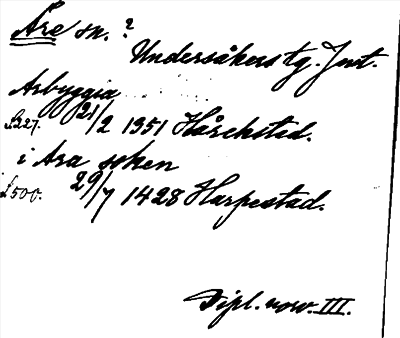 Åre sn. ?
Undersåkers tg. Jmt.
Arbyggia
s. 227. 21/2 1351 Hårckstad.
i Ara soken
s. 500. 29/7 1428 Harpestad.
Dipl. norv. III.